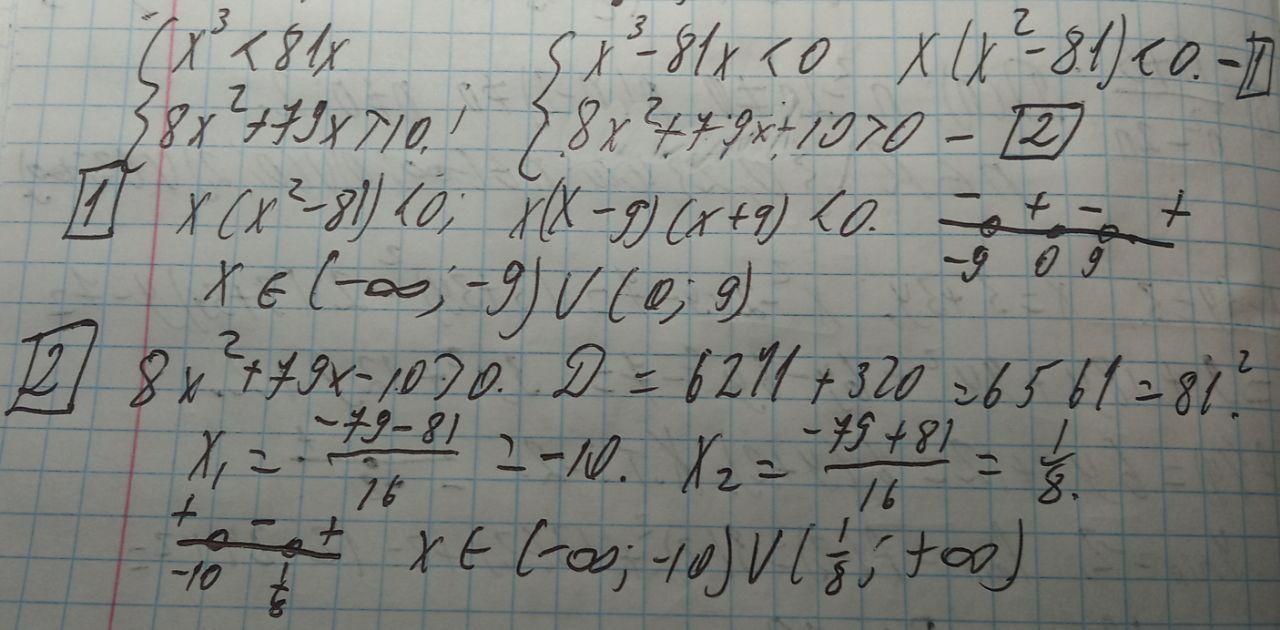 { x³ < 81x { x³ - 81x < 0 x(x² - 81) < 0. - 1
{ 8x² + 79x > 10. ; { 8x² + 79x + 10 > 0 - 2
1 x(x² - 81) < 0; x(x - 9)(x + 9) < 0. - + - +
-9 0 9
x ∈ (-∞; -9) ∪ (0; 9)
2 8x² + 79x - 10 > 0. D = 6241 + 320 = 6561 = 81².
x₁ = (-79 - 81)/16 = -10. x₂ = (-79 + 81)/16 = 1/8.
+ - + x ∈ (-∞; -10) ∪ (1/8; +∞)
-10 1/8